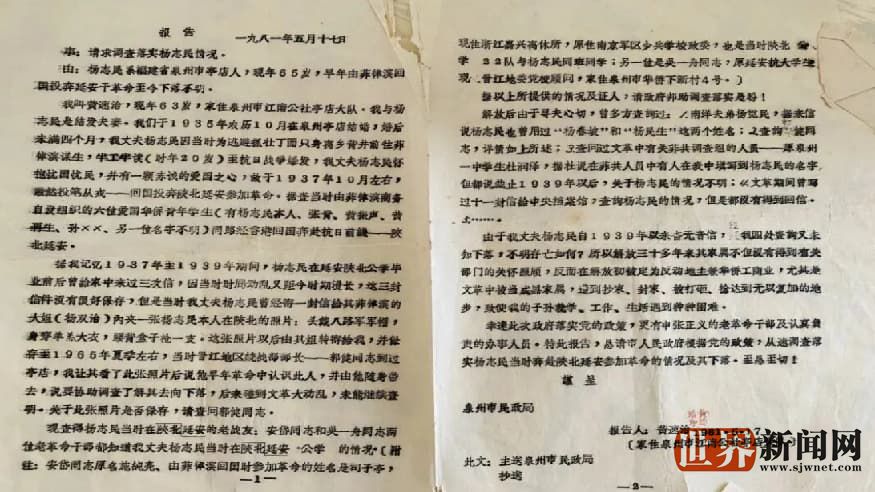 报告
一九八一年五月十七日
事:请求调查落实杨志民情况。
由:杨志民系福建省泉州市亭店人,现年65岁,早年由菲律滨回
国投奔延安干革命至今下落不明。
我叫黄速治,现年63岁,家住泉州市江南公社亭店大队。我与杨
志民是结发夫妻。我们于1935年农历10月在泉州亭店结婚,婚后
未满四个月,我丈夫杨志民因当时为逃避抓壮丁而只身离乡背井前往菲
律滨谋生,华工半读(对年20岁)至抗日战争爆发,我丈夫杨志民怀
抱抗国忧民,并有一颗赤诚的爱国之心,故于1937年10月左右,
毅然投笔从戎——回国投奔陕北延安参加革命。据查当时由菲律滨商务
自发组织的六位爱国华侨青年学生(有杨志民本人、张骨、黄振声、黄
再生、孙××、另一位名字不明)同路经香港回国奔赴抗日前线——陕
北延安。
据我记忆1937年至1939年期间,杨志民在延安陕北公学毕
业前后曾给家中来过三次信,因当时时局动乱又距今时期漫长,这三封
信件没有很好保存,但是当时我丈夫杨志民曾经寄一封信给其菲律滨的
大姐(杨双治)内夹一张杨志民本人在陕北的照片:头戴八路军军帽,
身穿单黑大衣,腰背盒子枪一支。这张照片以后由其姐转寄给我,并保
存至1965年夏季左右,当时晋江地区统战部部长——郭健同志到过
亭店,我让其看了此张照片后说他早年革命中认识此人,并由他随身带
去,说要协助调查了解其去向下落,后来碰到文革大动乱,未能继续查
明。关于此张照片是否保存,请查问郭健同志。
现查得杨志民当时在陕北延安的老战友:安岱同志和吴一舟同志两
位老革命干部都知道我丈夫杨志民当时在陕北延安“公学”的情况(附
注:安岱同志原名施松亮、由菲律滨回国时参加革命的姓名是司子亭,
—1—
现住浙江嘉兴离休所,原任南京军区步兵学校政委,也是当时陕北
学22队与杨志民同班同学;吴一舟同志,原延安抗大学生现
晋江地委党校顾问,家住泉州市华侨下新村4号。)
据以上所提供的情况及证人,请政府帮助调查落实是盼!
解放后由于寻夫心切,曾多方查询过:
说杨志民也曾用过“杨春波”和“杨民生”这两个姓名;
志,详情如上所述;
一中学生杜润泽,据杜说在菲共人员中有人在表中填写到杨志民的名字
但都说截止1939年以后,关于杨志民的情况不明;文革期间曾写
过十一封信给中央档案馆,查询杨志民的情况,但是都没有得到回信。
由于我丈夫杨志民自1939年以来杳无音信,我四处查询又未
知下落,不明存亡如何?所以解放三十多年来其家属不但没有得到有关
部门的关怀照顾,反而在解放初被定为反动地主兼华侨工商业,尤其是
文革中被当成黑家属,遭到抄家、封家、被打砸、抢达到无以复加的地
步,致使我的子孙就学、工作、生活遇到种种困难。
幸逢此次政府落实党的政策,更有申张正义的老革命干部及认真负
责的办事人员。特此报告,恳请市人民政府根据党的政策,从速调查落
实杨志民当时奔赴陕北延安参加革命的情况及其下落。至急至切!
谨呈
泉州市民政局
报告人:黄速治 1981.5.17
(家住泉州市江南公社亭店
此文:主送泉州市民政局
抄送
—2—
世界新闻网
www.sjwnet.com